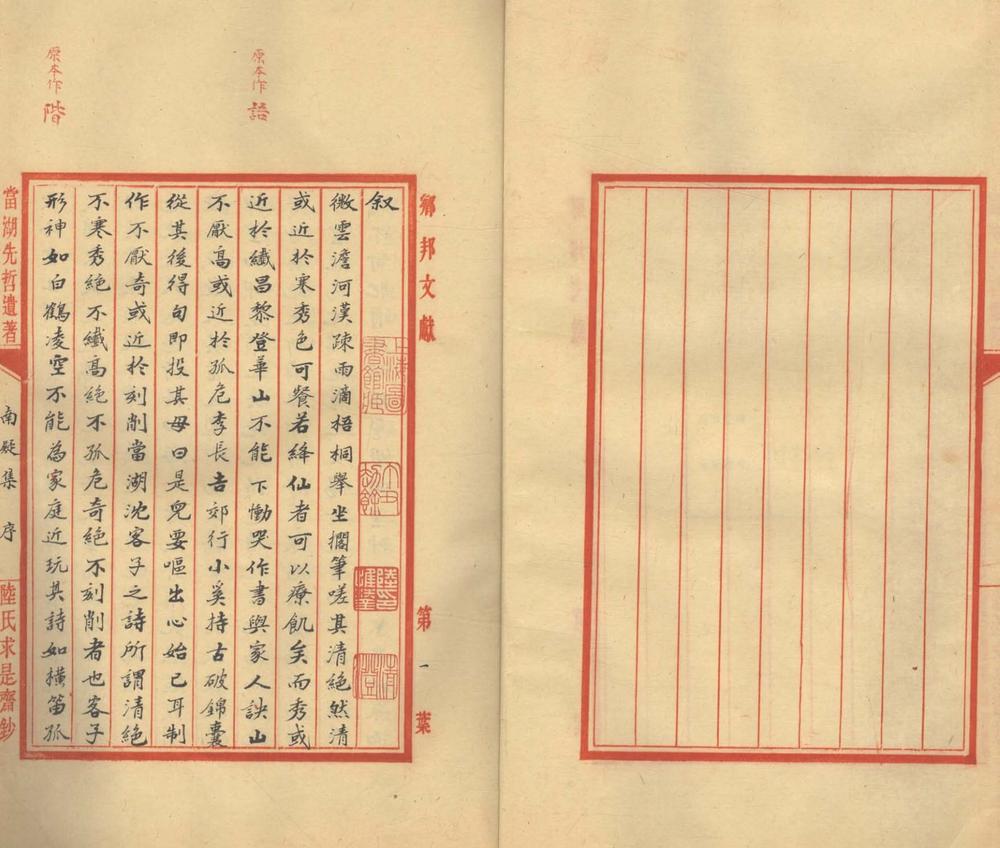 原本作語
原本作階
鄉邦文獻
第一葉
叙
微雲澹河漢疎雨滴梧桐舉坐擱筆嗟其清絕然清
或近於寒秀色可餐若絳仙者可以療飢矣而秀或
近於纖昌黎登華山不能下慟哭作書與家人訣山
不厭高或近於孤危李長吉郊行小奚持古破錦囊
從其後得句即投其母曰是兒要嘔出心始已耳制
作不厭奇或近於刻削當湖沈客子之詩所謂清絕
不寒秀絕不纖高絕不孤危奇絕不刻削者也客子
形神如白鶴凌空不能為家庭近玩其詩如橫笛孤
當湖先哲遺著
南疑集 序
陸氏求是齋鈔
上海圖書館藏